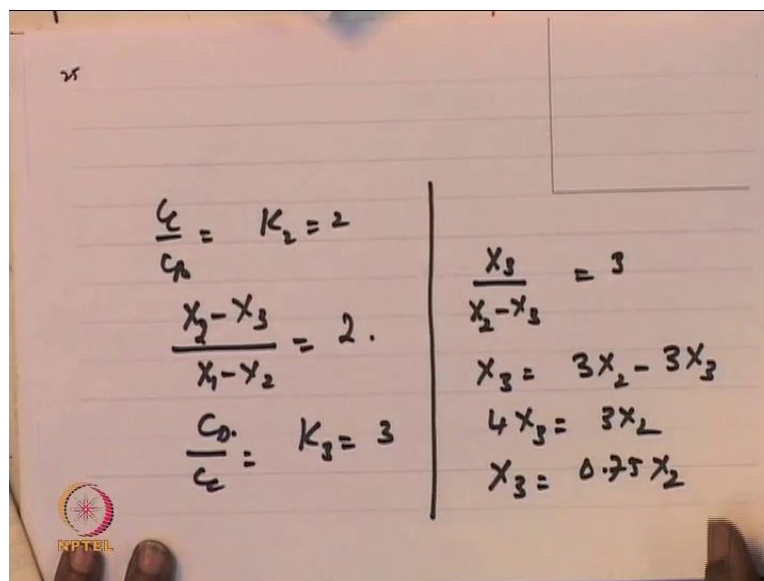 25
C_C/C_B = K_2 = 2
(X_2 - X_3)/(X_1 - X_2) = 2.
C_D./C_C = K_3 = 3
X_3/(X_2 - X_3) = 3
X_3 = 3X_2 - 3X_3
4X_3 = 3X_2
X_3 = 0.75X_2
NPTEL